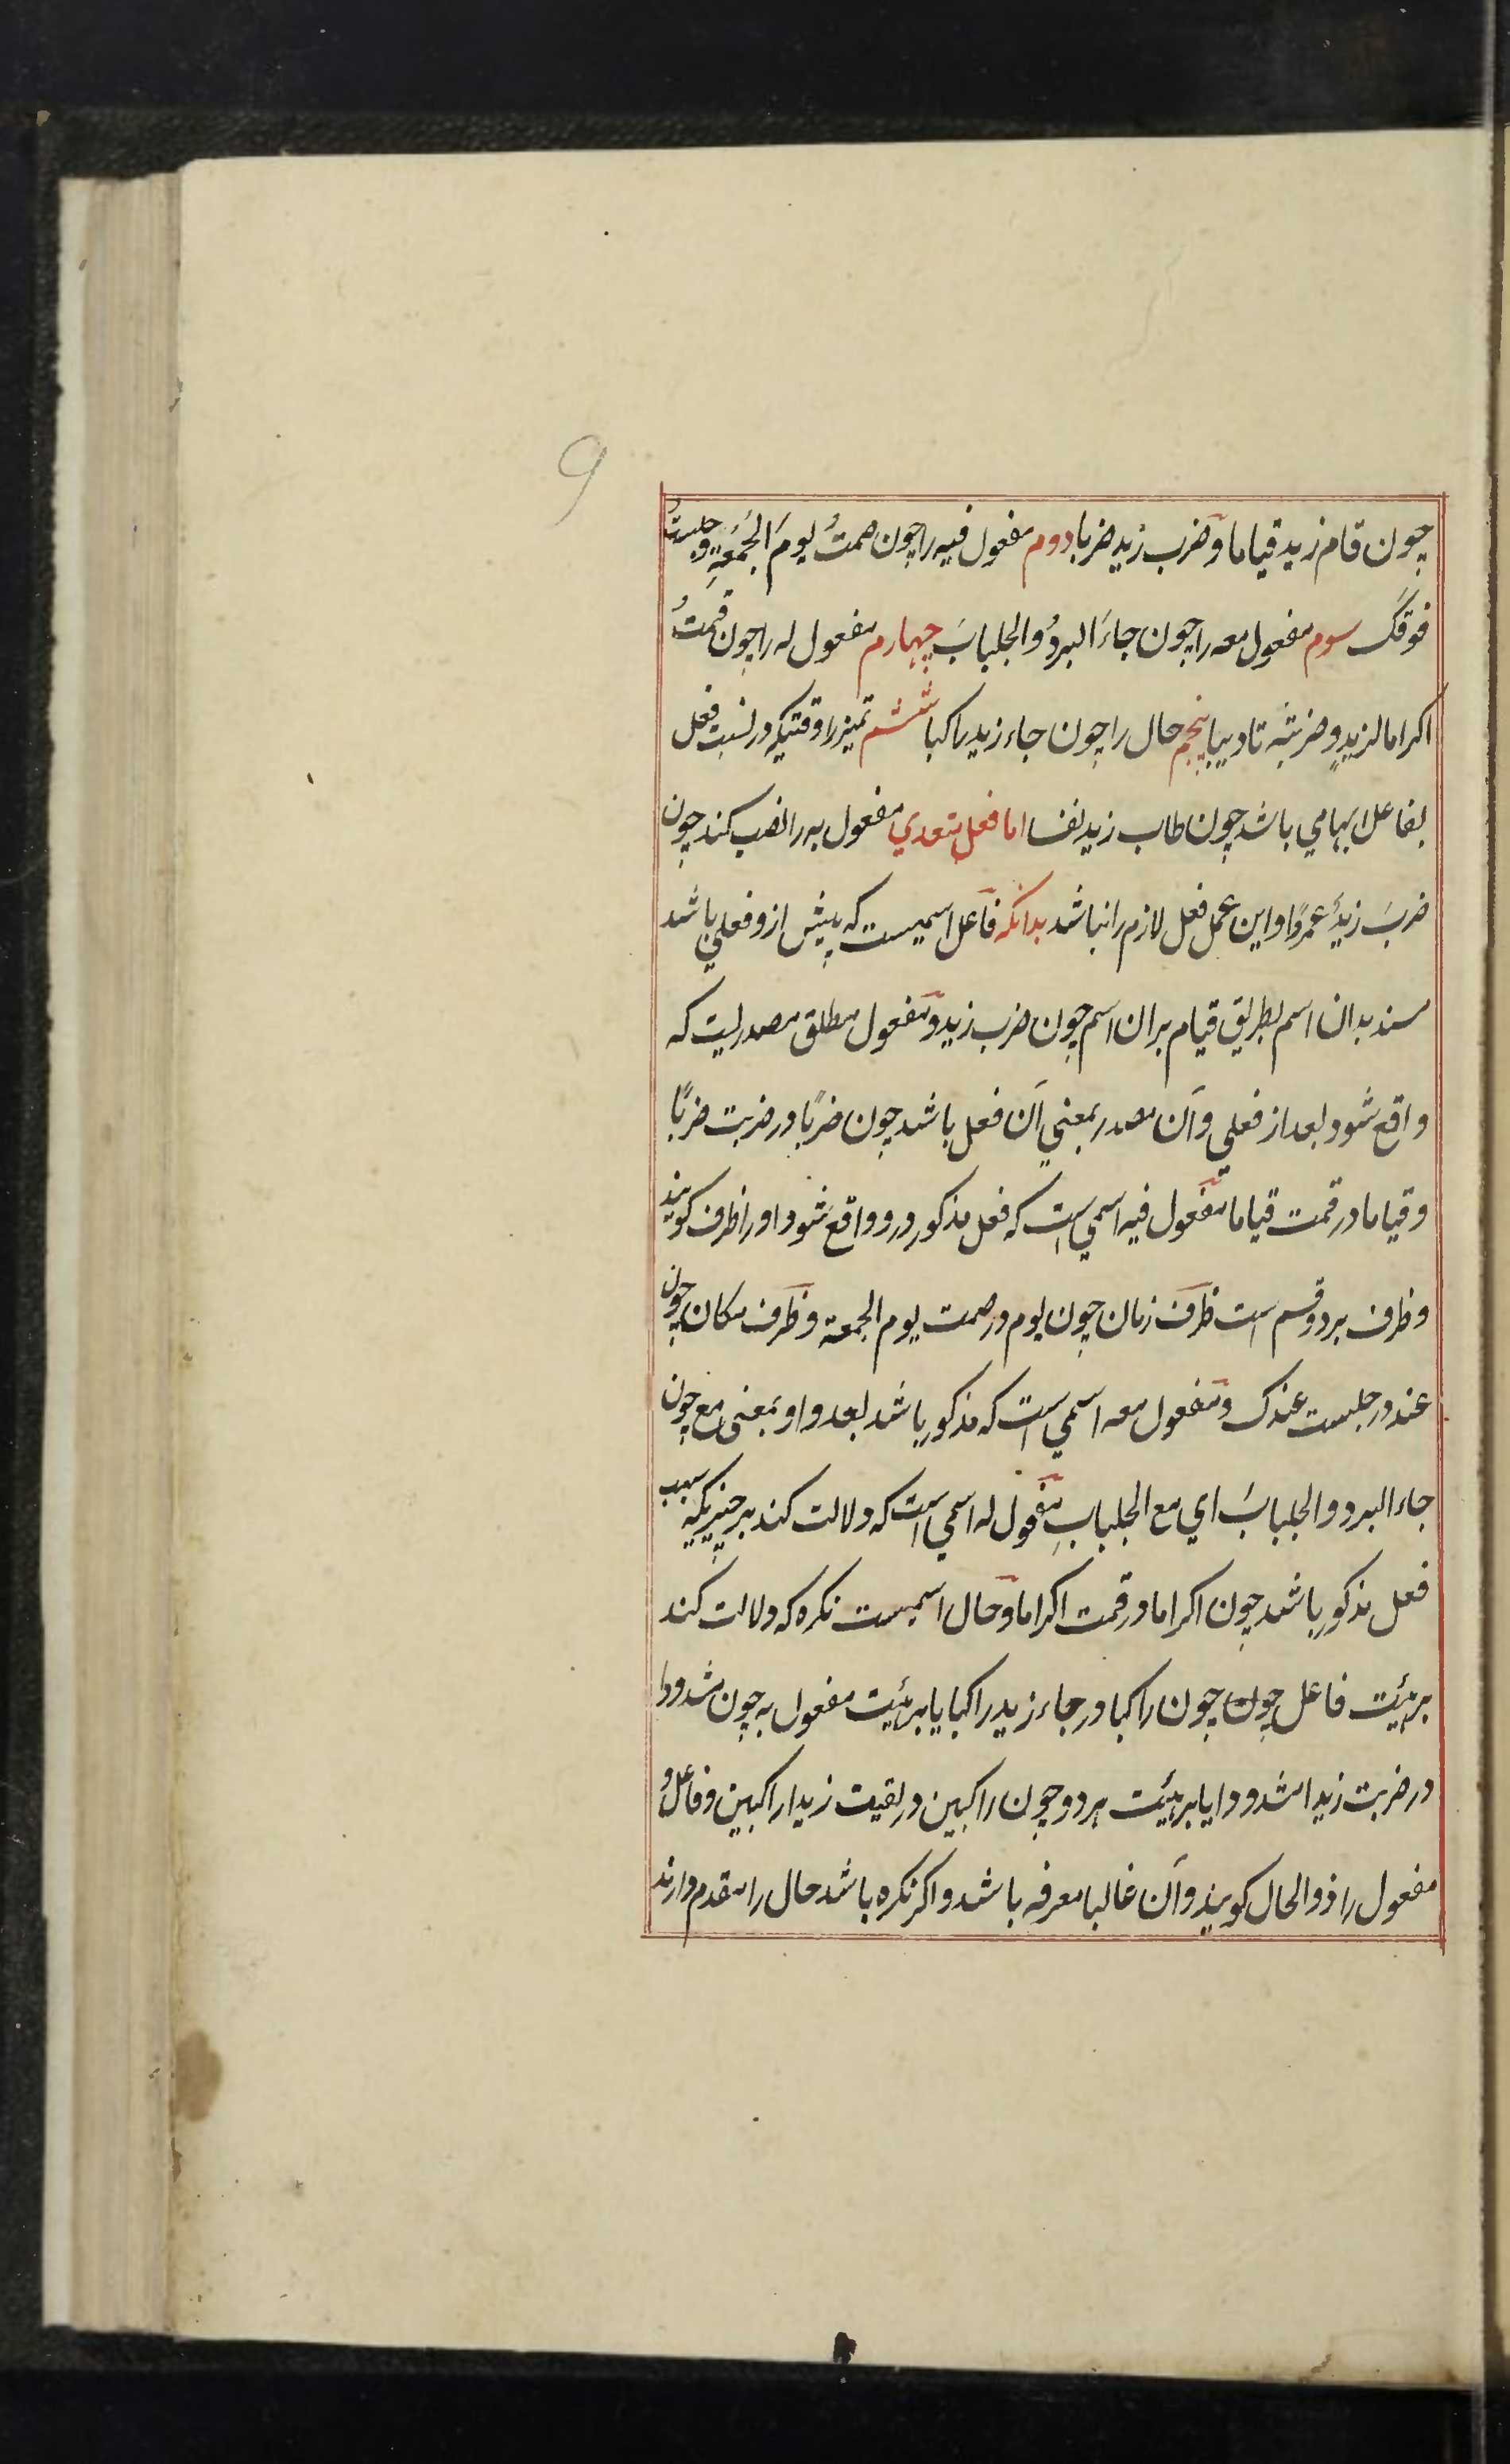 9
چون قام زید قیاما و ضرب زید ضربا دوم مفعول فیه را چون صمتُ یومَ الجُمُعَةِ و جلستُ
فوقک سوم مفعول معه را چون جاءَ البردُ والجلبابَ چهارم مفعول له را چون قمتُ
اکراما لزیدٍ و ضربتُه تادیبا پنجم حال را چون جاء زید راکبا ششم تمیز را وقتیکه در نسبت فعل
بفاعل ابهامی باشد چون طاب زید نفسا اما فعل متعدی مفعول به را نصب کند چون
ضربَ زیدٌ عمروًا و این عمل فعل لازم را نباشد بدانکه فاعل اسمیست که پیش از و فعلی باشد
مسند بدان اسم بطریق قیام بران اسم چون ضرب زید و مفعول مطلق مصدریست که
واقع شود بعد از فعلی و آن مصدر بمعنی آن فعل باشد چون ضربًا در ضربت ضربًا
و قیاما در قمت قیاما مفعول فیه اسمی است که فعل مذکور درو واقع شود او را ظرف کویند
و ظرف بر دو قسم است ظرف زمان چون یوم در صمت یوم الجمعة و ظرف مکان چون
عند در جلست عندک و مفعول معه اسمی است که مذکور باشد بعد واو بمعنی مع چون
جاء البرد والجلبابَ ای مع الجلبابِ مفعول له اسمی است که دلالت کند بر چیزیکه سبب
فعل مذکور باشد چون اکراما در قمت اکراما و حال اسمیست نکره که دلالت کند
بر هیئت فاعل چون چون راکبا در جاء زید راکبا یا بر هیئت مفعول به چون مشدودا
در ضربت زیدا مشدودا یا بر هیئت هر دو چون راکبین در لقیت زیدا راکبین و فاعل و
مفعول را ذوالحال کویند و آن غالبا معرفه باشد و اکر نکره باشد حال را مقدم دارند